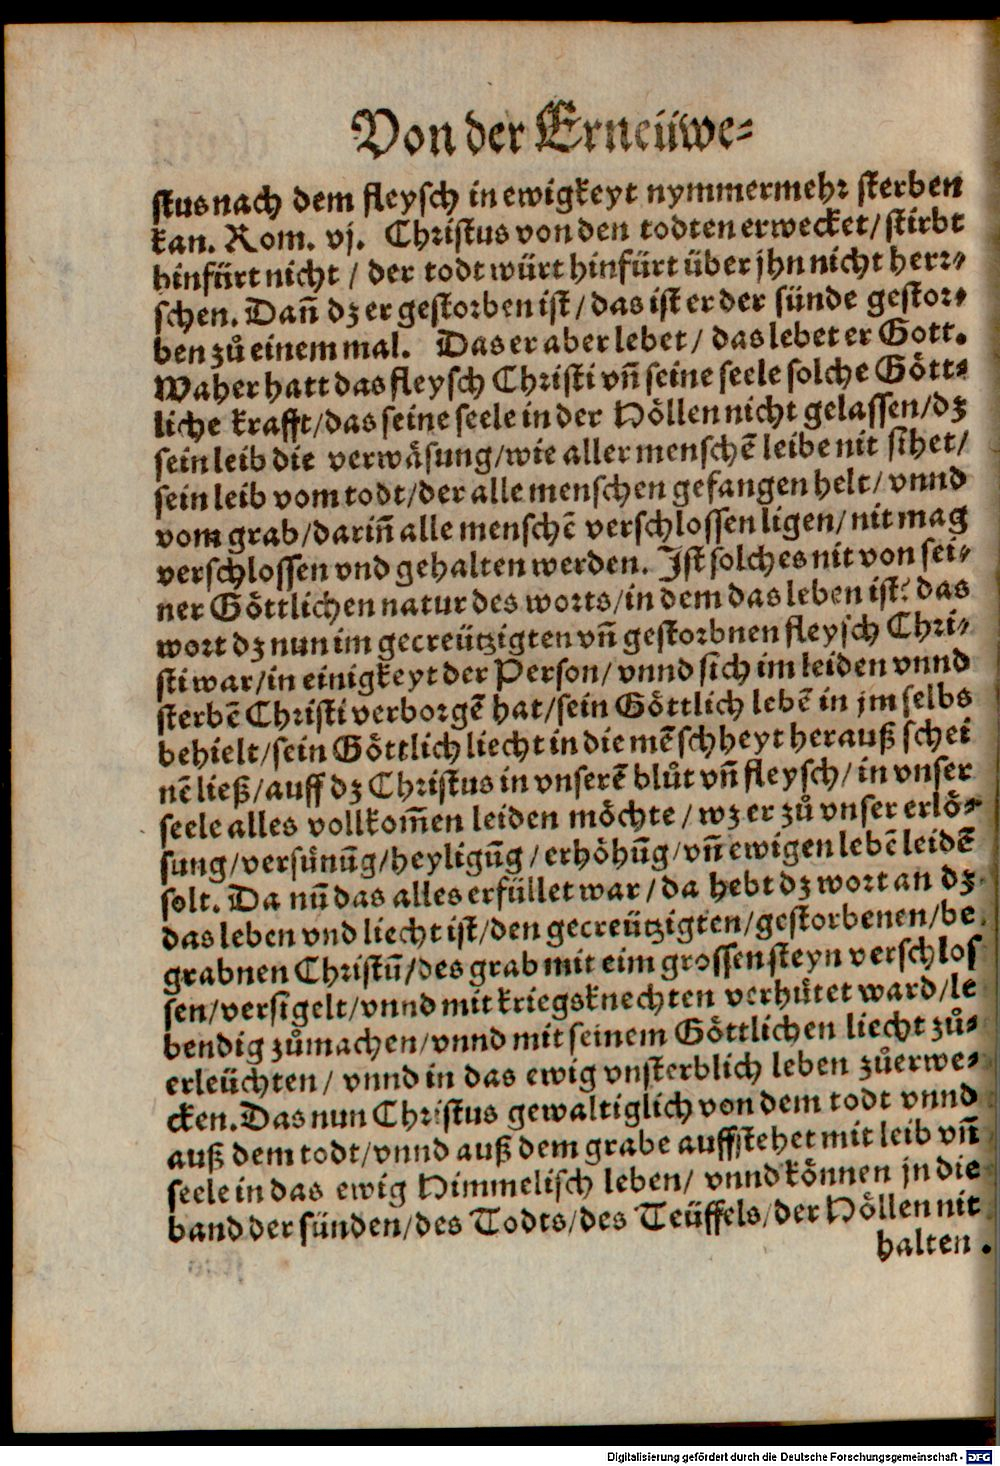 Von der Erneüwe-
stus nach dem fleysch in ewigkeyt nymmermehr sterben
kan. Rom. vj. Christus von den todten erwecket/ stirbt
hinfürt nicht / der todt würt hinfürt über jhn nicht herr-
schen. Dañ dz er gestorben ist/ das ist er der sünde gestor-
ben zů einem mal. Das er aber lebet/ das lebet er Gott.
Waher hatt das fleysch Christi vñ seine seele solche Gött-
liche krafft/das seine seele in der Höllen nicht gelassen/dz
sein leib die verwäsung/wie aller menschē leibe nit sihet/
sein leib vom todt/der alle menschen gefangen helt/ vnnd
vom grab/dariñ alle menschē verschlossen ligen/nit mag
verschlossen vnd gehalten werden. Ist solches nit von sei-
ner Göttlichen natur des worts/in dem das leben ist: das
wort dz nun im gecreützigten vñ gestorbnen fleysch Chri-
sti war/in einigkeyt der Person/ vnnd sich im leiden vnnd
sterbē Christi verborgē hat/sein Göttlich lebē in jm selbs
behielt/sein Göttlich liecht in die mēschheyt herauß schei
nē ließ/auff dz Christus in vnserē blůt vñ fleysch/ in vnser
seele alles vollkom̃en leiden möchte/ wz er zů vnser erlö-
sung/versünūg/heyligūg/erhöhūg/vñ ewigen lebē leidē
solt. Da nū das alles erfüllet war/da hebt dz wort an dz
das leben vnd liecht ist/den gecreützigten/gestorbenen/be
grabnen Christū/des grab mit eim grossen steyn verschlos
sen/versigelt/vnnd mit kriegsknechten verhütet ward/le
bendig zůmachen/vnnd mit seinem Göttlichen liecht zů-
erleüchten/ vnnd in das ewig vnsterblich leben zůerwe-
cken. Das nun Christus gewaltiglich von dem todt vnnd
auß dem todt/vnnd auß dem grabe auffstehet mit leib vñ
seele in das ewig Himmelisch leben/ vnnd können jn die
band der sünden/des Todts/des Teüffels/der Höllen nit
halten.
Digitalisierung gefördert durch die Deutsche Forschungsgemeinschaft - DFG